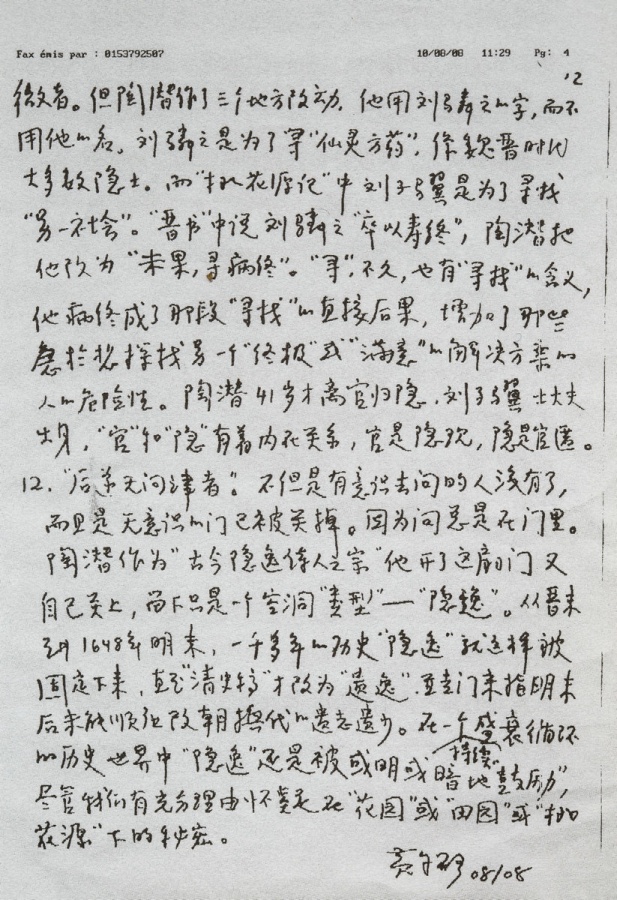 Fax émis par : 0153792507 10/08/08 11:29 Pg: 4
12
徵者。但陶潜作了三个地方改动。他用刘驎之的字，而不
用他的名。刘驎之是为了寻“仙灵方药”，像魏晋时代
大多数隐士。而“桃花源记”中刘子骥是为了寻找
“另一社会”。“晋书”中说刘驎之“卒以寿终”，陶潜把
他改为“未果，寻病终”。“寻”，不久，也有“寻找”的含义，
他病终成了那段“寻找”的直接后果，增加了那些
急于想探找另一个“终极”或“满意”的解决方案的
人的危险性。陶潜41岁才离官归隐，刘子骥士大夫
出身，“官”和“隐”有着内在关系，官是隐现，隐是官匿。
12. “后遂无问津者”。不但是有意识去问的人没有了，
而且是无意识的门已被关掉。因为问总是在门里。
陶潜作为“古今隐逸诗人之宗”他开了这扇门又
自己关上，留下只是一个空洞“类型”—“隐逸”。从晋末
到1648年明末，一千多年的历史“隐逸”就这样被
固定下来，直到“清史稿”才改为“遗逸”，并专门来指明末
后未能顺从改朝换代的遗老遗少。在一个盛衰循环
的历史世界中“隐逸”还是被或明或暗地持续“鼓励”，
尽管我们有充分理由怀疑是在“花园”或“田园”或“桃
花源”下的秘密。
黄永砅 08/08